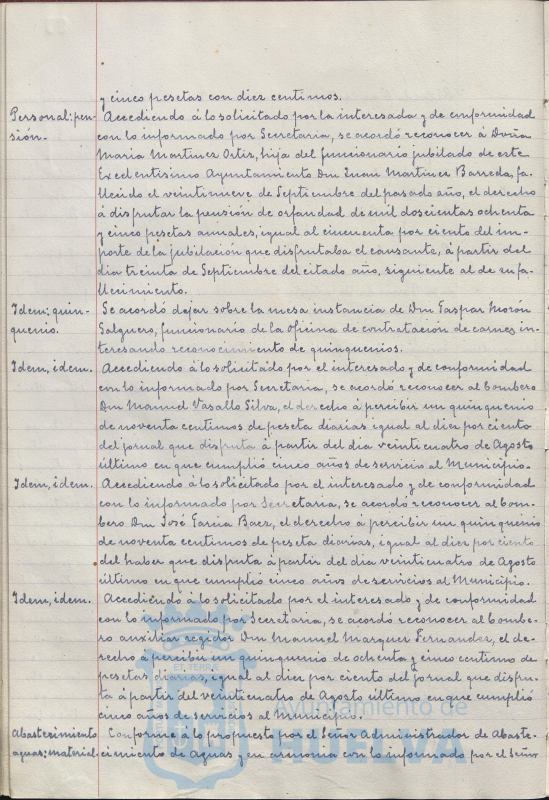 y cinco pesetas con diez centimos.
Personal: pen- Accediendo á lo solicitado por la interesada y de conformidad
sión.- con lo informado por Secretaria, se acordó reconocer á Doña
Maria Martinez Ortiz, hija del funcionario jubilado de este
Excelentisimo Ayuntamiento Don Juan Martinez Barreda, fa-
llecido el veintinueve de Septiembre del pasado año, el derecho
á disfrutar la pensión de orfandad de mil doscientas ochenta
y cinco pesetas anuales, igual al cincuenta por ciento del im-
porte de la jubilación que disfrutaba el causante, á partir del
dia treinta de Septiembre del citado año, siguiente al de su fa-
llecimiento.
Idem; quin- Se acordó dejar sobre la mesa instancia de Don Gaspar Morón
quenio. Salguero, funcionario de la oficina de contratación de carnes in-
teresando reconocimiento de quinquenios.
Idem, idem. Accediendo á lo solicitado por el interesado y de conformidad
con lo informado por Secretaria, se acordó reconocer al bombero
Don Manuel Vasallo Silva, el derecho á percibir un quinquenio
de noventa centimos de peseta diarias igual al diez por ciento
del jornal que disfruta á partir del dia veinticuatro de Agosto
último en que cumplió cinco años de servicio al Municipio.
Idem, idem. Accediendo á lo solicitado por el interesado y de conformidad
con lo informado por Secretaria, se acordó reconocer al bom-
bero Don José Garcia Baez, el derecho á percibir un quinquenio
de noventa centimos de peseta diarias, igual al diez por ciento
del haber que disfruta á partir del dia veinticuatro de Agosto
último en que cumplió cinco años de servicios al Municipio.
Idem, idem. Accediendo á lo solicitado por el interesado y de conformidad
con lo informado por Secretaria, se acordó reconocer al bombe-
ro auxiliar regidor Don Manuel Marquez Fernandez, el de-
recho á percibir un quinquenio de ochenta y cinco centimo de
pesetas diarias, igual al diez por ciento del jornal que disfru-
ta á partir del veinticuatro de Agosto último en que cumplió
cinco años de servicios al Municipio.
Abastecimiento Conforme á lo propuesto por el Señor Administrador de Abaste-
aguas; material. cimiento de Aguas y en armonia con lo informado por el Señor
Ayuntamiento de
HUELVA